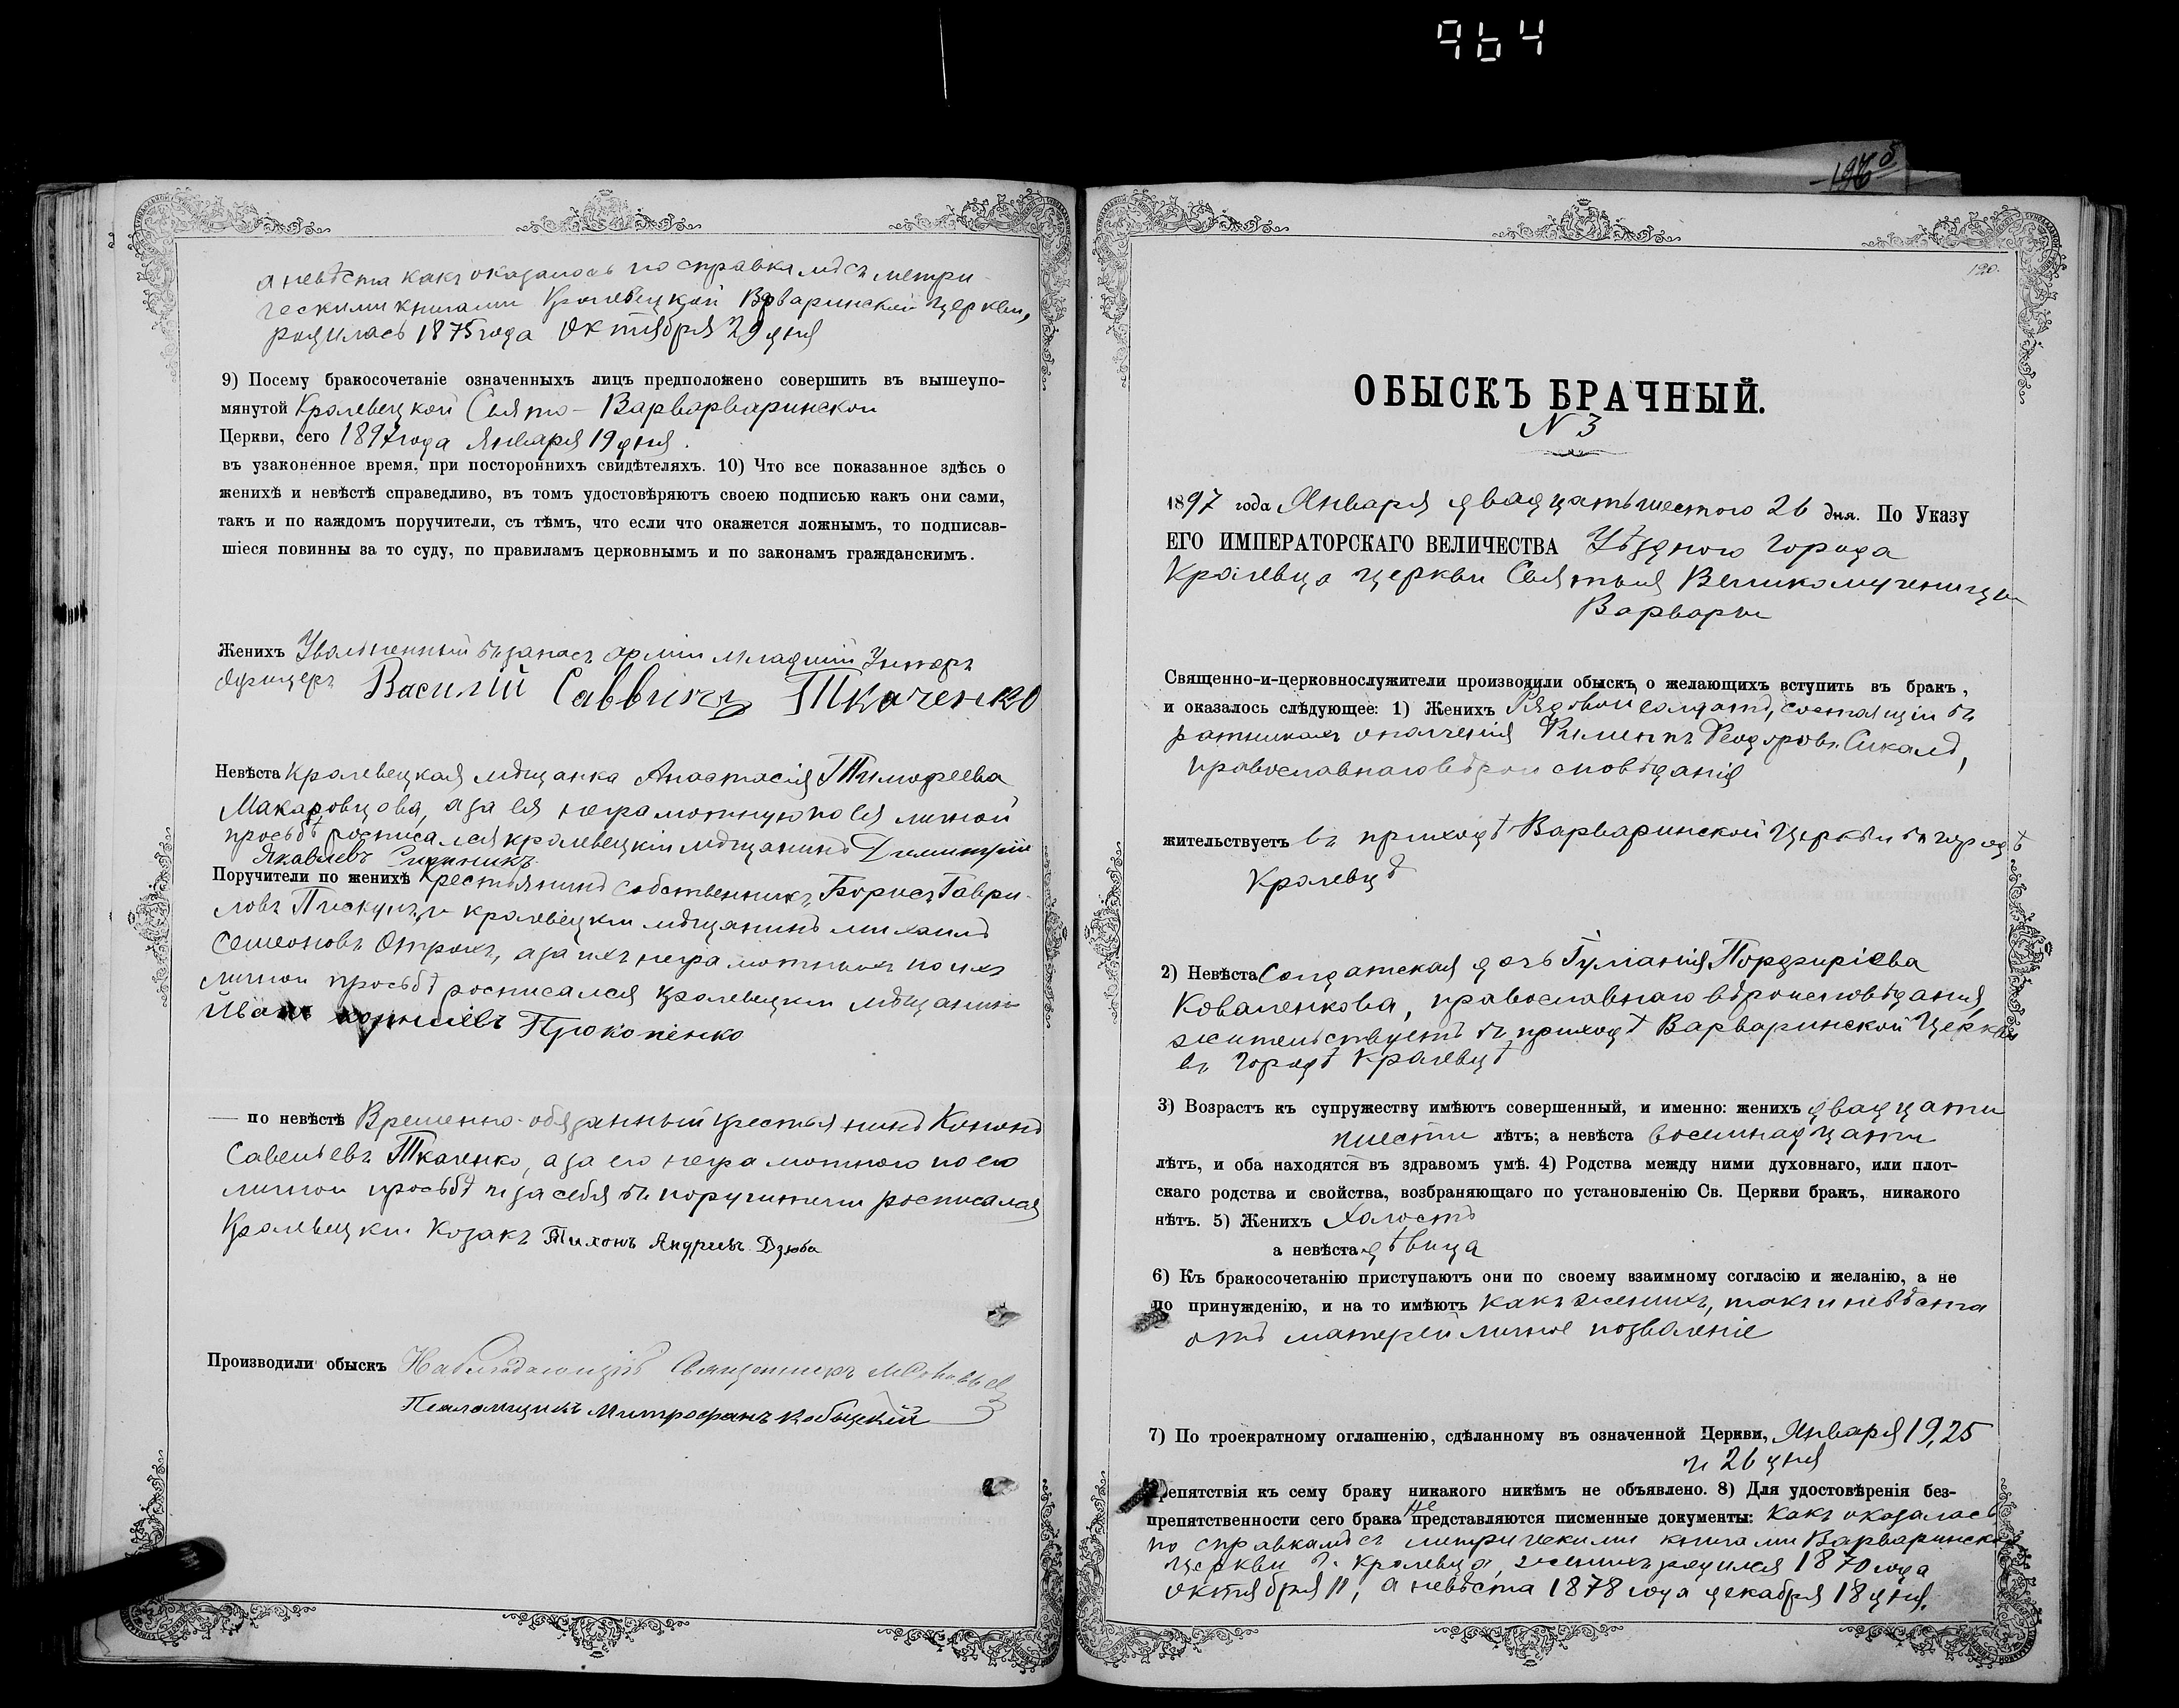 964
1965
а невѣста какъ оказалось по справкамъ съ метри
ческими книгами Кролевецкой Варваринской церкви,
родилась 1875 года Октября 29 дня
9) Посему бракосочетаніе означенныхъ лицъ предположено совершить въ вышеупо-
мянутой Кролевецкой Свято-Варварваринской
Церкви, сего 1897 года Января 19 дня.
въ узаконенное время, при постороннихъ свидѣтеляхъ. 10) Что все показанное здѣсь о
женихѣ и невѣстѣ справедливо, въ томъ удостовѣряютъ своею подписью какъ они сами,
такъ и по каждомъ поручители, съ тѣмъ, что если что окажется ложнымъ, то подписав-
шіеся повинны за то суду, по правиламъ церковнымъ и по законамъ гражданскимъ.
Женихъ Уволенный въ запасъ арміи младшій Унтеръ
Офицеръ Василій Саввичъ Ткаченко
Невѣста Кролевецкая мѣщанка Анастасія Тимофеева
Макаровцова, а за ея неграмотную по ея личной
просьбѣ росписался кролевецкій мѣщанинъ Димитрій
Яковлевъ
Поручители по женихѣ Крестьянинъ собственникъ Борисъ Гаври-
ловъ Пискунъ, и кролевецкій мѣщанинъ Михаилъ
Семеоновъ Отрохъ, а за ихъ неграмотныхъ по ихъ
личной просьбѣ росписался кролевецкій мѣщанинъ
Иванъ Прокопенко
— по невѣстѣ Временно-обязанный крестьянинъ Кононъ
Савельевъ Ткаченко, а за его неграмотного по его
личной просьбѣ и за себя въ поручители росписался
Кролевецкій Козакъ Тихонъ Андреевъ Дзюба
Производили обыскъ Наблюдающій Священникъ
Псаломщикъ Митрофанъ Кобыцкій
120.
ОБЫСКЪ БРАЧНЫЙ.
N 3
1897 года Января двадцатьшестого 26 дня. По Указу
ЕГО ИМПЕРАТОРСКАГО ВЕЛИЧЕСТВА Уѣзднаго города
Кролевца церкви Святыя Великомученицы
Варвары
Священно-и-церковнослужители производили обыскъ о желающихъ вступить въ бракъ,
и оказалось слѣдующее: 1) Женихъ Рядовой солдатъ, состоящій въ
ратникахъ ополченія Филиппъ Феодоровъ Сикалъ,
православнаго вѣроисповѣданія
жительствуетъ въ приходѣ Варваринской Церкви въ городѣ
Кролевцѣ
2) Невѣста Солдатская дочь Гуліанія Порфиріева
Коваленкова, православнаго вѣроисповѣданія,
жительствуетъ въ приходѣ Варваринской Церкви
въ городѣ Кролевцѣ
3) Возрастъ къ супружеству имѣютъ совершенный, и именно: женихъ двадцати
шести лѣтъ; а невѣста восемнадцати
лѣтъ, и оба находятся въ здравомъ умѣ. 4) Родства между ними духовнаго, или плот-
скаго родства и свойства, возбраняющаго по установленію Св. Церкви бракъ, никакого
нѣтъ. 5) Женихъ холостъ
а невѣста дѣвица
6) Къ бракосочетанію приступаютъ они по своему взаимному согласію и желанію, а не
по принужденію, и на то имѣютъ какъ женихъ, такъ и невѣста
отъ матерей личное позволеніе
7) По троекратному оглашенію, сдѣланному въ означенной Церкви, Января 19, 25
и 26 дня
препятствія къ сему браку никакого никѣмъ не объявлено. 8) Для удостовѣренія без-
препятственности сего брака не представляются писменные документы: какъ оказалась
по справкамъ съ метрическими книгами Варваринской
церкви г. Кролевца, женихъ родился 1870 года
октября 11, а невѣста 1878 года декабря 18 дня.